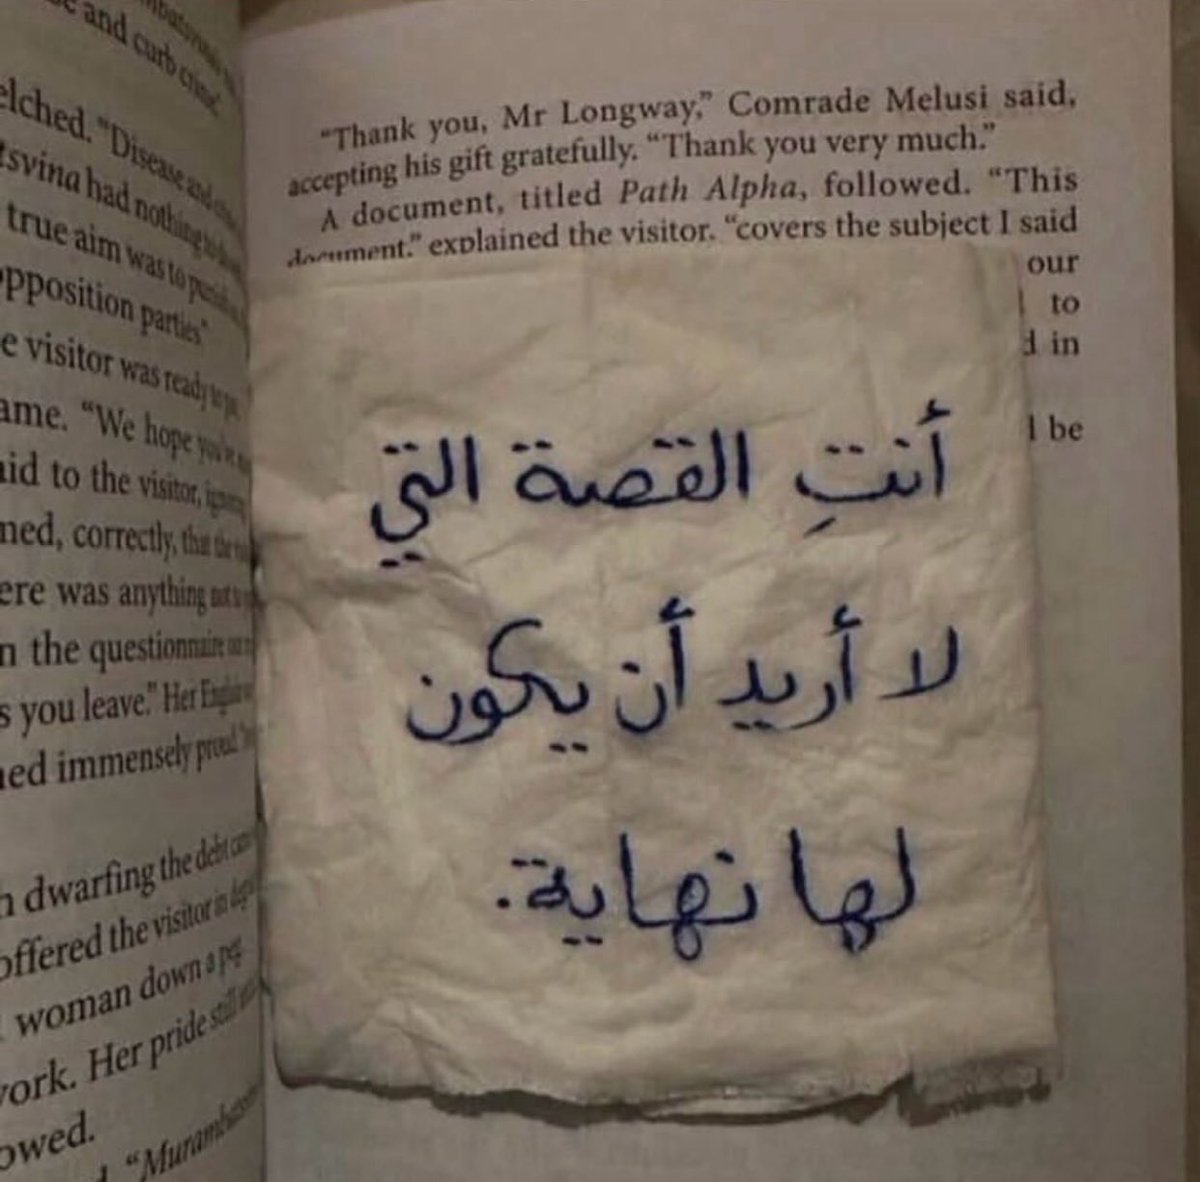 and curb crime".
elched. "Disease and
tsvina had nothing to do
true aim was to punish
opposition parties"
e visitor was ready to
ame. "We hope you've
aid to the visitor,
med, correctly, that the
ere was anything not to
n the questionnaire
s you leave." Her English
ned immensely proud.
n dwarfing the debt
offered the visitor in
woman down a peg
work. Her pride still
owed.
"Murambatsvina
"Thank you, Mr Longway," Comrade Melusi said,
accepting his gift gratefully. "Thank you very much."
A document, titled Path Alpha, followed. "This
document," explained the visitor, "covers the subject I said
our
to
in
be
أنتِ القصة التي
لا أريد أن يكون
لها نهاية.